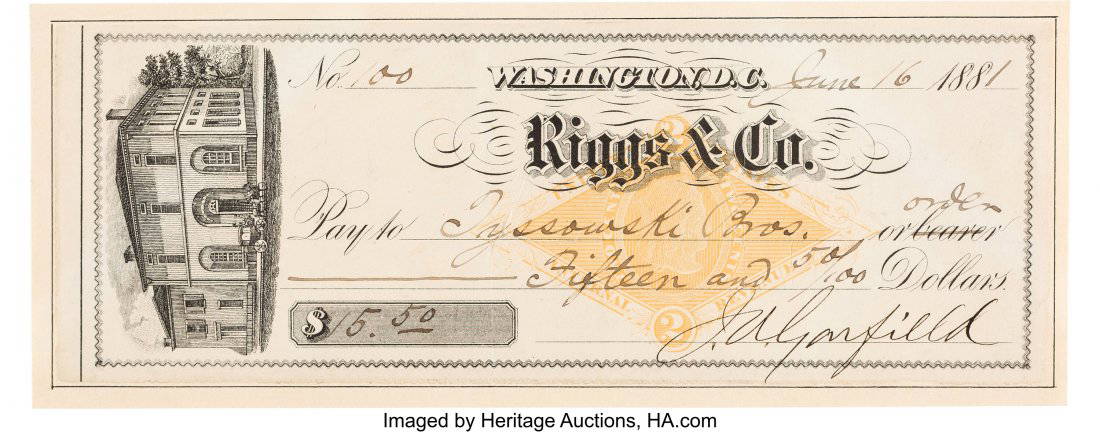 No. 100 WASHINGTON, D.C. June 16 1881
Riggs & Co.
Pay to Tyssowski Bros. or bearer order
Fifteen and 50/100 Dollars.
$15.50
J.A. Garfield
2
Imaged by Heritage Auctions, HA.com